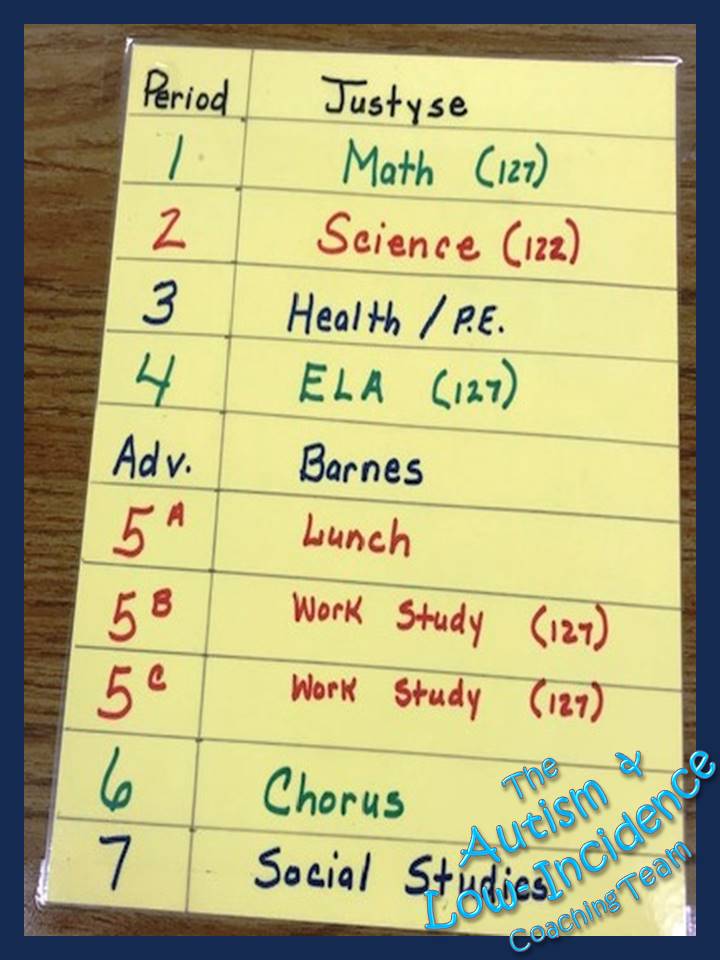 Period Justyse
1 Math (127)
2 Science (122)
3 Health / P.E.
4 ELA (127)
Adv. Barnes
5A Lunch
5B Work Study (127)
5C Work Study (127)
6 Chorus
7 Social Studies
The
Autism &
Low-Incidence
Coaching Team